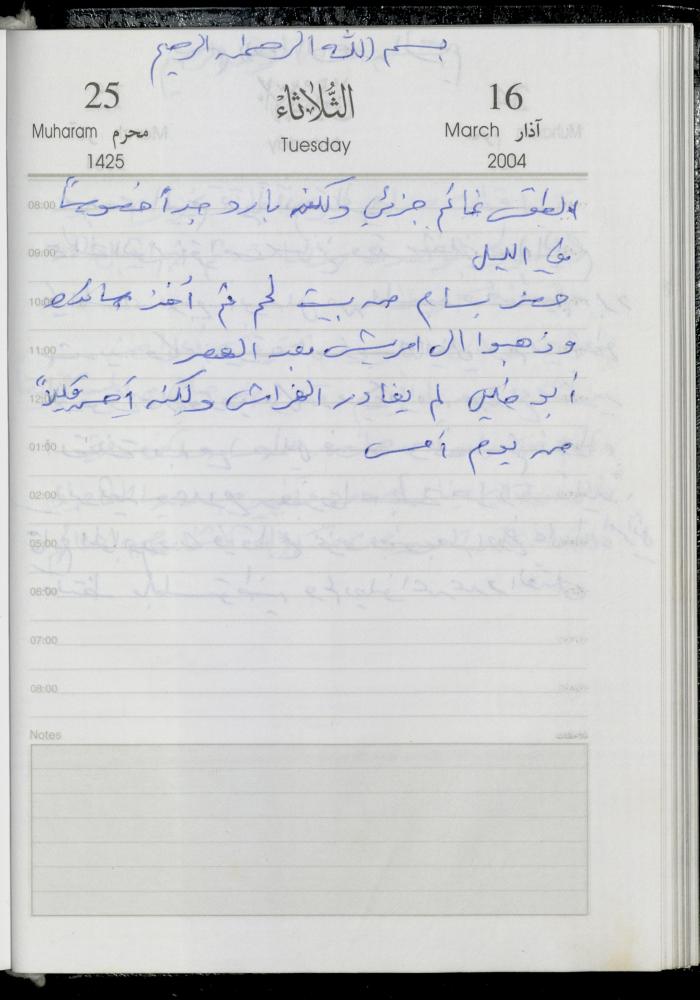 بسم الله الرحمن الرحيم
25 الثلاثاء 16
Muharam محرم Tuesday March آذار
1425 2004
08:00 الطقس غائم جزئي ولكنه بارد جداً خصوصاً
09:00 في الليل
10:00 حضر بسام من بيت لحم ثم أخذ
11:00 وذهبوا الى امريش بعد العصر
12:00 أبو خليل لم يغادر الفراش ولكنه أحسن قليلاً
01:00 من يوم أمس
02:00
05:00
06:00
07:00
08:00
Notes